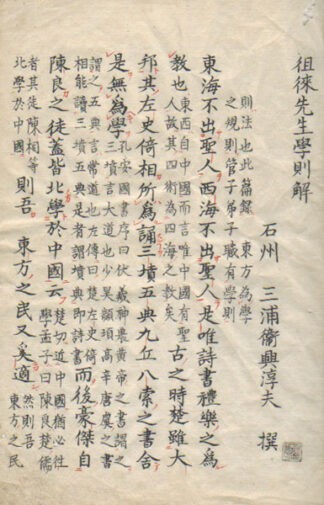 徂徠先生學則解
石州　三浦衛興淳夫　撰
則法也此篇錄　東方為學
之規則管子弟子職有學則
東海不出聖人西海不出聖人是唯詩書禮樂之為
教也
東西自中國而言唯中國有聖
人故其四術為四海之教矣
古之時楚雖大
邦其左史倚相所為誦三墳五典九丘八索之書舍
是無為學
孔安國書序曰伏羲神農黃帝之書謂之
三墳言大道也少昊顓頊高辛唐虞之書
謂之五典言常道也左傳曰楚左史倚
相能讀三墳五典是者謂墳典即詩書
而後豪傑自
陳良之徒蓋皆北學於中國云
楚切近中國猶必往
學孟子曰陳良楚儒
者其徒陳相等
北學於中國
則吾　東方之民又奚適
然則吾
東方之民